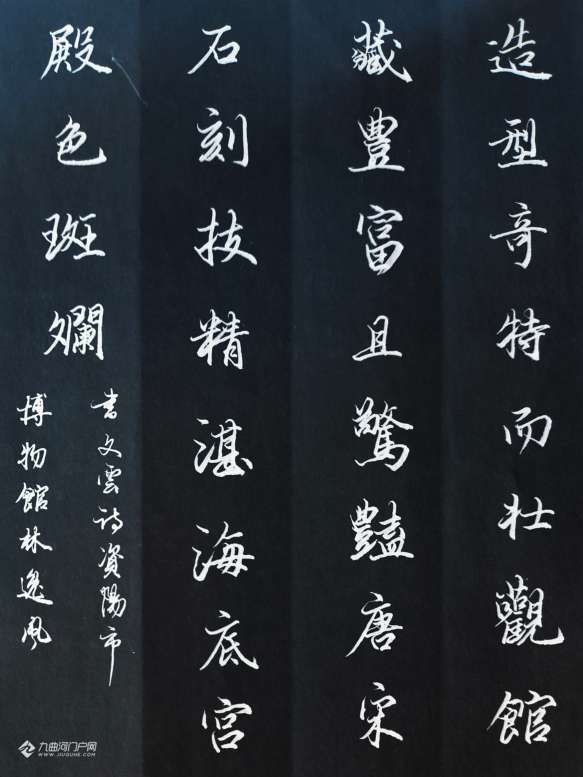 造型奇特而壮觀館
藏豐富且驚豔唐宋
石刻技精湛海底宫
殿色斑斕
書文雲诗資陽市
博物館林逸風
九曲河门户网
WWW.JIUQUHE.COM